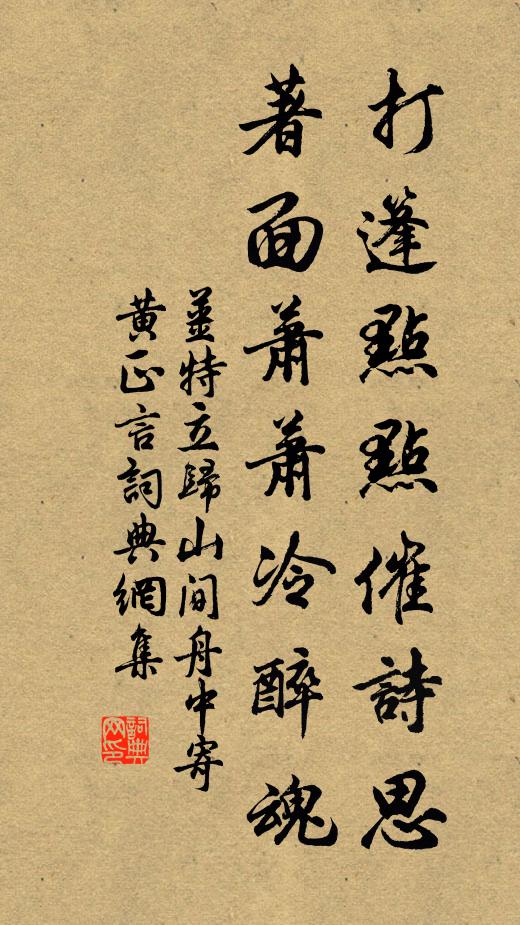 打蓬點點催詩思
著面蕭蕭冷醉魂
薑特立歸山間舟中寄
黃正言詞典網集
詞典
网印